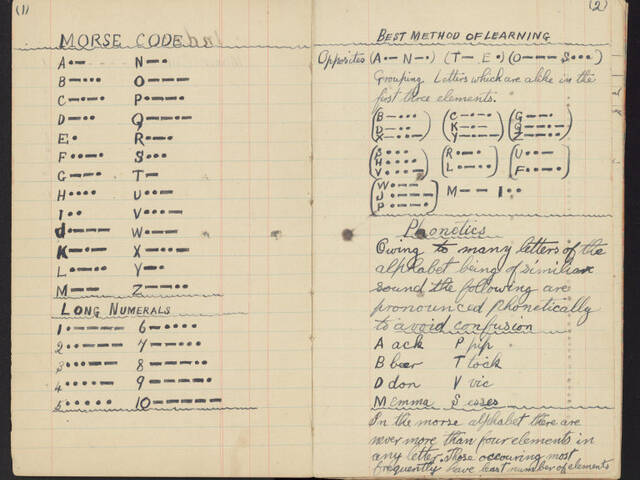 (1)
MORSE CODE
A •— N —•
B —••• O ———
C —•—• P •——•
D —•• Q ——•—
E • R •—•
F ••—• S •••
G ——• T —
H •••• U ••—
I •• V •••—
J •——— W •——
K —•— X —••—
L •—•• Y —•——
M —— Z ——••
LONG NUMERALS
1 •———— 6 —••••
2 ••——— 7 ——•••
3 •••—— 8 ———••
4 ••••— 9 ————•
5 ••••• 10 —————
(2)
BEST METHOD OF LEARNING
Opposites (A •— N —•) (T — E •) (O ——— S •••)
Grouping Letters which are alike in the
first three elements.
(B —••• (C —•—• (G ——•
D —•• K —•— Q ——•—
X —••—) Y —•——) Z ——••)
(S ••• (R •—• (U ••—
H •••• L •—••) F ••—•)
V •••—)
(W •——
J •——— M —— I ••
P •——•)
Phonetics
Owing to many letters of the
alphabet being of similiar
sound the following are
pronounced phonetically
to avoid confusion
A ack P pip
B beer T tock
D don V vic
M emma S esses
In the morse alphabet there are
never more than four elements in
any letter. Those occouring most
frequently have least number of elements